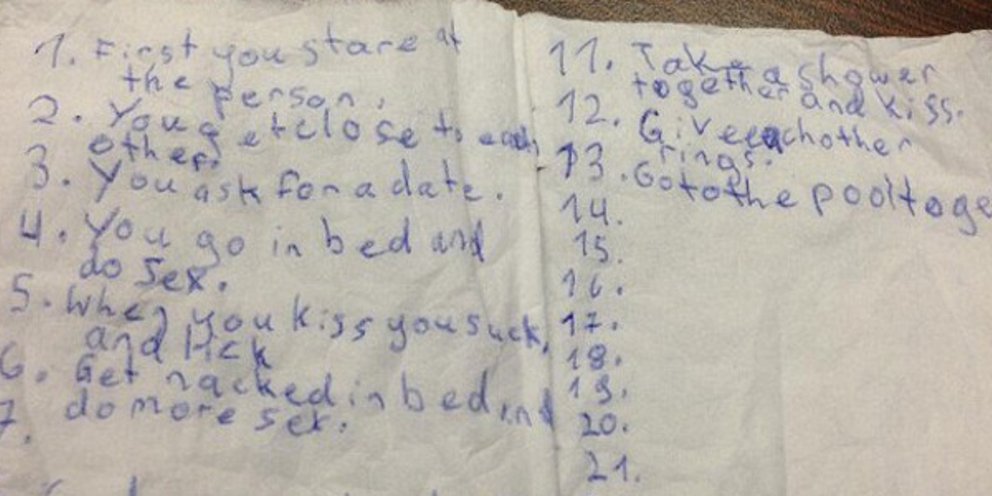 1. First you stare at
the person.
2. You get close to each
other.
3. You ask for a date.
4. You go in bed and
do sex.
5. When you kiss you suck
and lick
6. Get nacked in bed and
do more sex.
7.
11. Take a shower
together and kiss.
12. Give eachother
rings.
13. Go to the pool toge
14.
15.
16.
17.
18.
19.
20.
21.